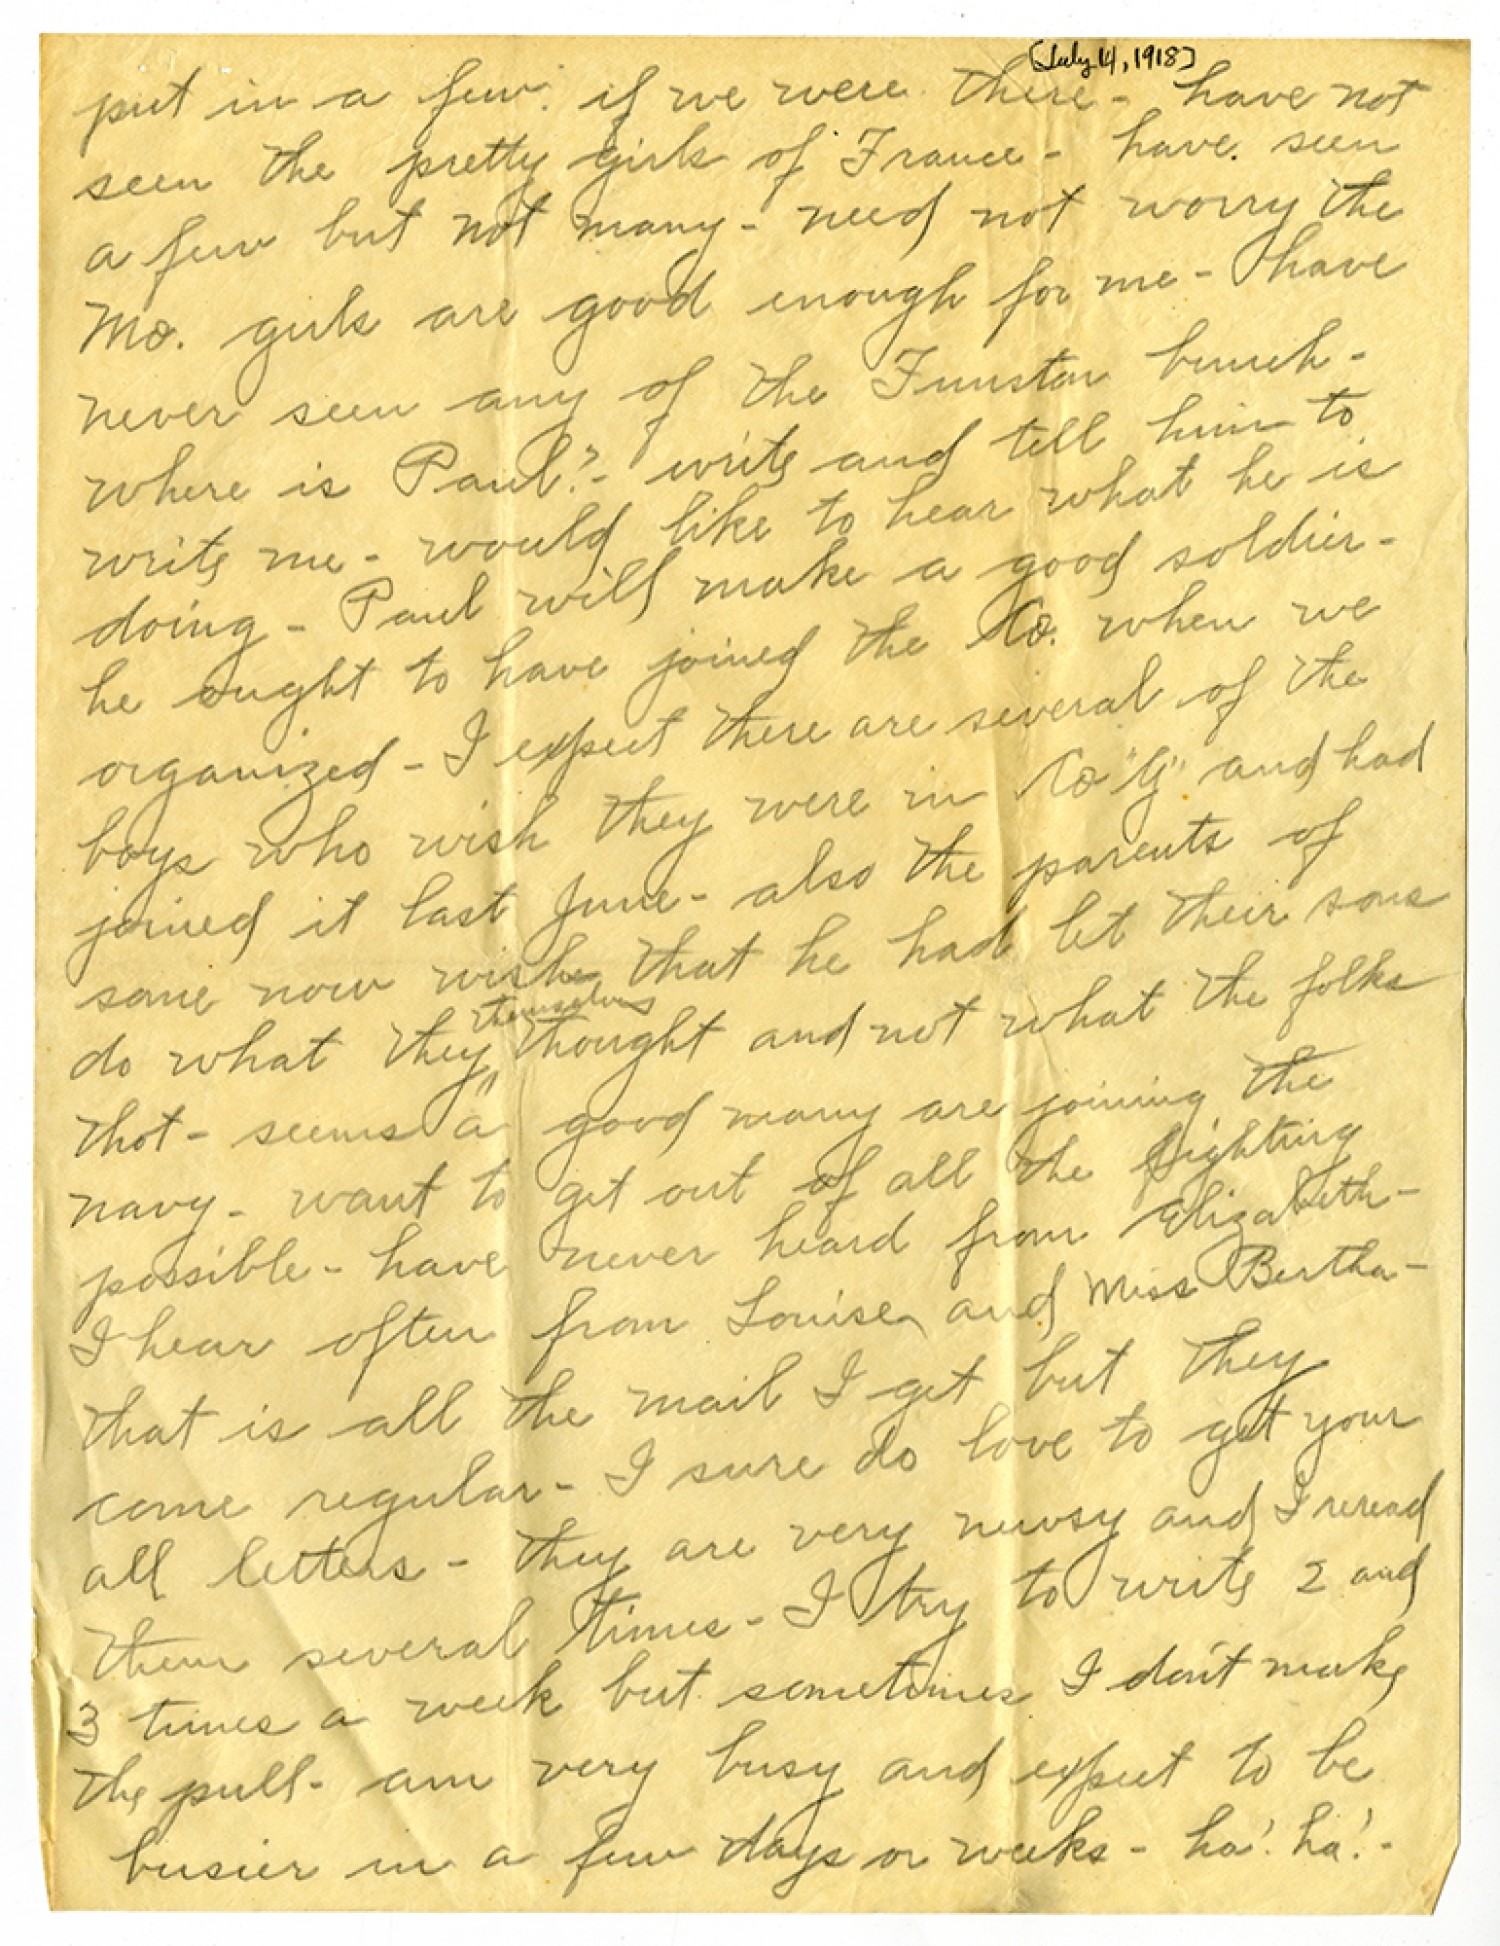 (July 14, 1918)
put in a few if we were there - have not
seen the pretty girls of France - have seen
a few but not many - need not worry the
Mo. girls are good enough for me - have
never seen any of the Funston bunch -
where is Paul? - write and tell him to
write me - would like to hear what he is
doing - Paul will make a good soldier -
he ought to have joined the Co. when we
organized - I expect there are several of the
boys who wish they were in Co "G" and had
joined it last June - also the parents of
some now wish that he had let their sons
do what they themselves thought and not what the folks
thot - seems a good many are joining the
navy - want to get out of all the fighting
possible - have never heard from Elizabeth -
I hear often from Louise and Miss Bertha -
that is all the mail I get but they
come regular - I sure do love to get your
all letters - they are very newsy and I reread
them several times - I try to write 2 and
3 times a week but sometimes I don't make
the pull - am very busy and expect to be
busier in a few days or weeks - ha! ha! -